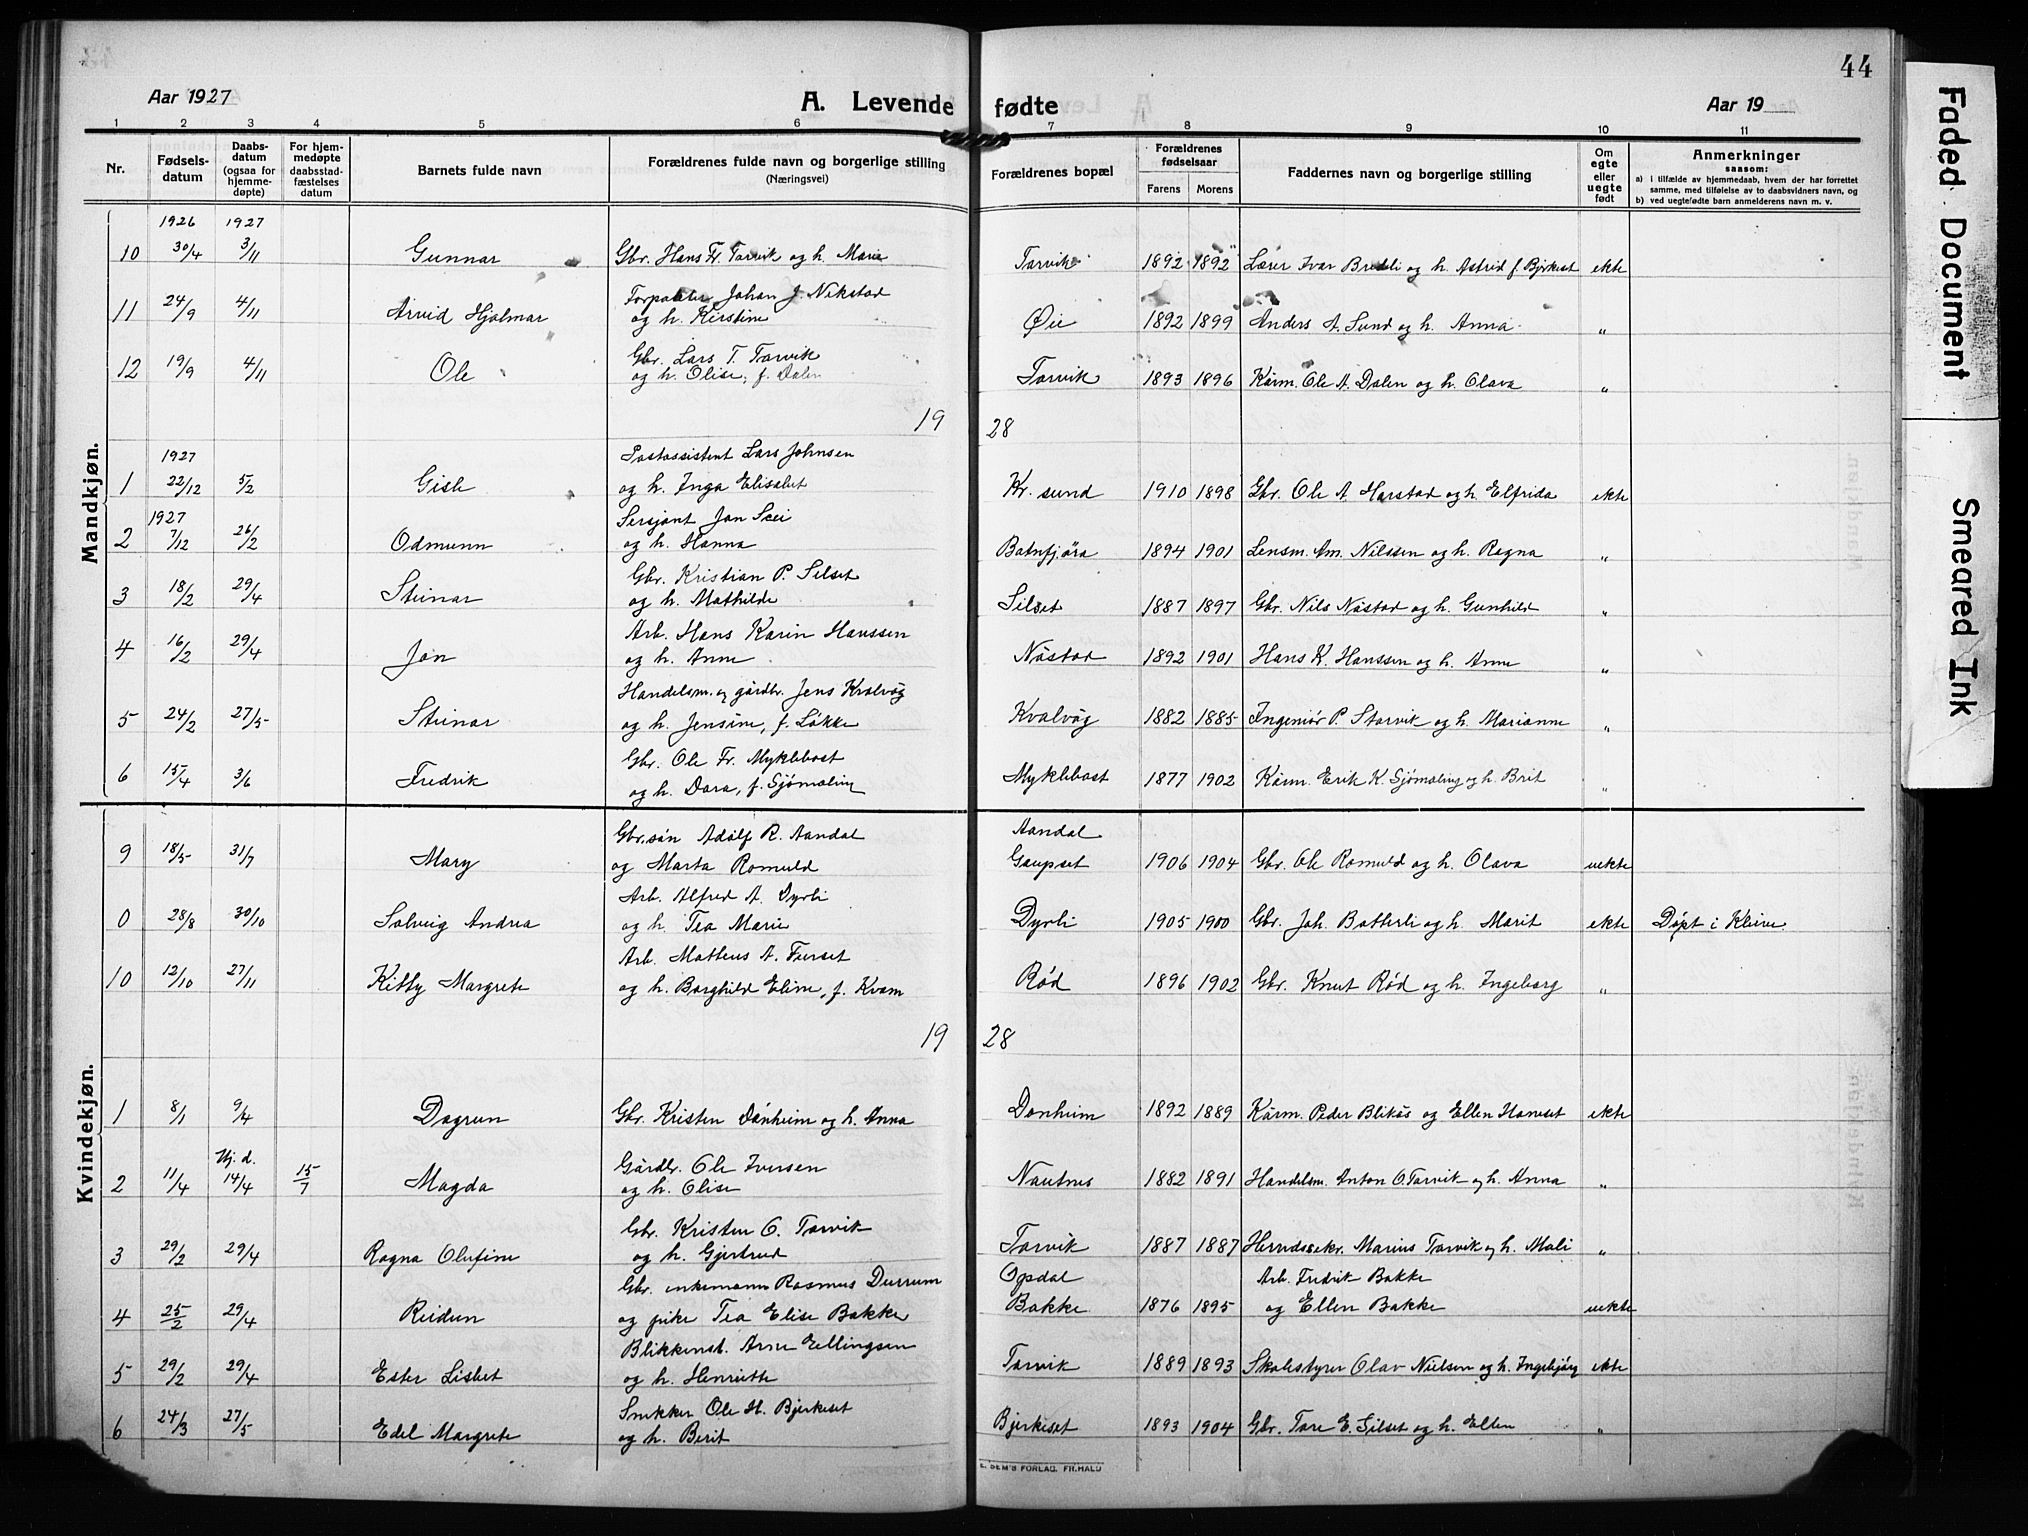 44
Aar 1927
A. Levende fødte
Aar 19
1 2 3 4 5 6 7 8 9 10 11
Nr.
Fødsels-
datum
Daabs-
datum
(ogsaa for
hjemme-
døpte)
For hjem-
medøpte
daabsstad-
fæstelses
datum
Barnets fulde navn
Forældrenes fulde navn og borgerlige stilling
(Næringsvei)
Forældrenes bopæl
Forældrenes
fødselsaar
Farens Morens
Faddernes navn og borgerlige stilling
Om
egte
eller
uegte
født
Anmerkninger
saasom:
a) i tilfælde av hjemmedaab, hvem der har forrettet
samme, med tilføielse av to daabsvidners navn, og
b) ved uegtefødte barn anmelderens navn m. v.
Mandkjøn.
1926 1927
10 30/4 3/11 Gunnar Gbr. Hans Fr. Torvik og h. Marie Torvik 1892 1892 Lærer Ivar Bredeli og h. Astrid f. Bjerkeset ekte
Johan J. Nekstad
11 24/9 4/11 Arvid Hjalmar og h. Kirstine Øie 1892 1899 Anders A. Sund og h. Anna "
Gbr. Lars T. Torvik
12 19/9 4/11 Ole og h. Olise, f. Dalen Torvik 1893 1896 Kårm. Ole A. Dalen og h. Olava "
19 28
1927 Postassistent Lars Johnsen
1 22/12 5/2 Gisle og h. Inga Elisabet Kr. sund 1910 1898 Gbr. Ole A. Harstad og h. Elfrida ekte
1927 Sersjant Jon
2 7/12 26/2 Odmunn og h. Hanna Batnfjöra 1894 1901 Lensm. Am. Nilssen og h. Regna "
Gbr. Kristian P. Silset
3 18/2 29/4 Steinar og h. Mathilde Silset 1887 1897 Gbr. Nils Nåstad og h. Gunhild "
Arb. Hans Karin Hanssen
4 16/2 29/4 Jon og h. Anne Nåstad 1892 1901 Hans K. Hanssen og h. Anne "
Handelsm. og gårdbr. Jens Kvalvåg
5 24/2 27/5 Steinar og h. Jensine, f. Løkke Kvalvåg 1882 1885 Ingeniør P. Storvik og h. Marianne "
Gbr. Ole Fr. Myklebost
6 15/4 3/6 Fredrik og h. Dora, f. Sjömæling Myklebost 1877 1902 Kårm. Erik K. Sjömæling og h. Brit "
Kvindekjøn.
Gbr.søn Adolf R. Aandal Aandal
9 18/5 31/7 Mary og Marta Romuld Gaupset 1906 1904 Gbr. Ole Romuld og h. Olava uekte
Arb. Alfred A. Dyrli
0 28/8 30/10 Solveig Andrea og h. Tea Marie Dyrli 1905 1900 Gbr. Joh. Botterli og h. Marit ekte Døpt i Kleive.
Arb. Matteus A. Furset
10 12/10 27/11 Kitty Margrete og h. Borghild Eline, f. Kvam Rød 1896 1902 Gbr. Knut Rød og h. Ingeborg "
19 28
1 8/1 9/4 Dagrun Gbr. Kristen Dønheim og h. Anna Dønheim 1892 1889 Kårm. Peder Blikås og Ellen Haneset ekte
Hj. d. Gårdbr. Ole Iversen
2 11/4 14/4 15/7 Magda og h. Olise Nautnes 1882 1891 Handelsm. Anton O. Torvik og h. Anna "
Gbr. Kristen O. Torvik
3 29/2 29/4 Ragna Olufine og h. Gjertrud Torvik 1887 1887 Herredssekr. Marius Torvik og h. Mali "
Gbr. enkemann Rasmus Durrum Opdal Arb. Fredrik Bakke
4 25/2 29/4 Reidun og pike Tea Elise Bakke Bakke 1876 1895 og Ellen Bakke uekte
Blikkensl. Arne Ellingsen
5 29/2 29/4 Ester Lisbet og h. Henriette Torvik 1889 1893 Skolestyrer Olav Nielsen og h. Ingebjørg ekte
Snekker Ole H. Bjerkeset
6 24/3 27/5 Edel Margrete og h. Berit Bjerkeset 1893 1904 Gbr. Tore E. Silset og h. Ellen "
E. SEM'S FORLAG. FR.HALD
Faded Document
Smeared Ink